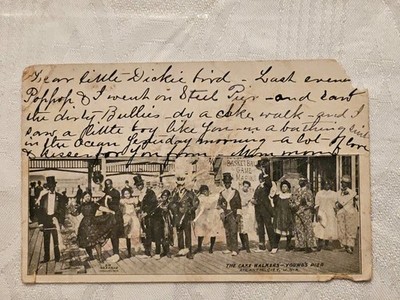 Dear little Dickie bird - Last evening
Poppop & I went on Steel Pier - and saw
the dirty Bullies - do a cake walk - and I
saw a little boy like you - in a bathing suit
in the ocean yesterday morning - a lot of love
& kisses for you from Mom mom
BASKET BALL
GAME
THE CAKE WALKERS - YOUNG'S PIER
ATLANTIC CITY, N.J.